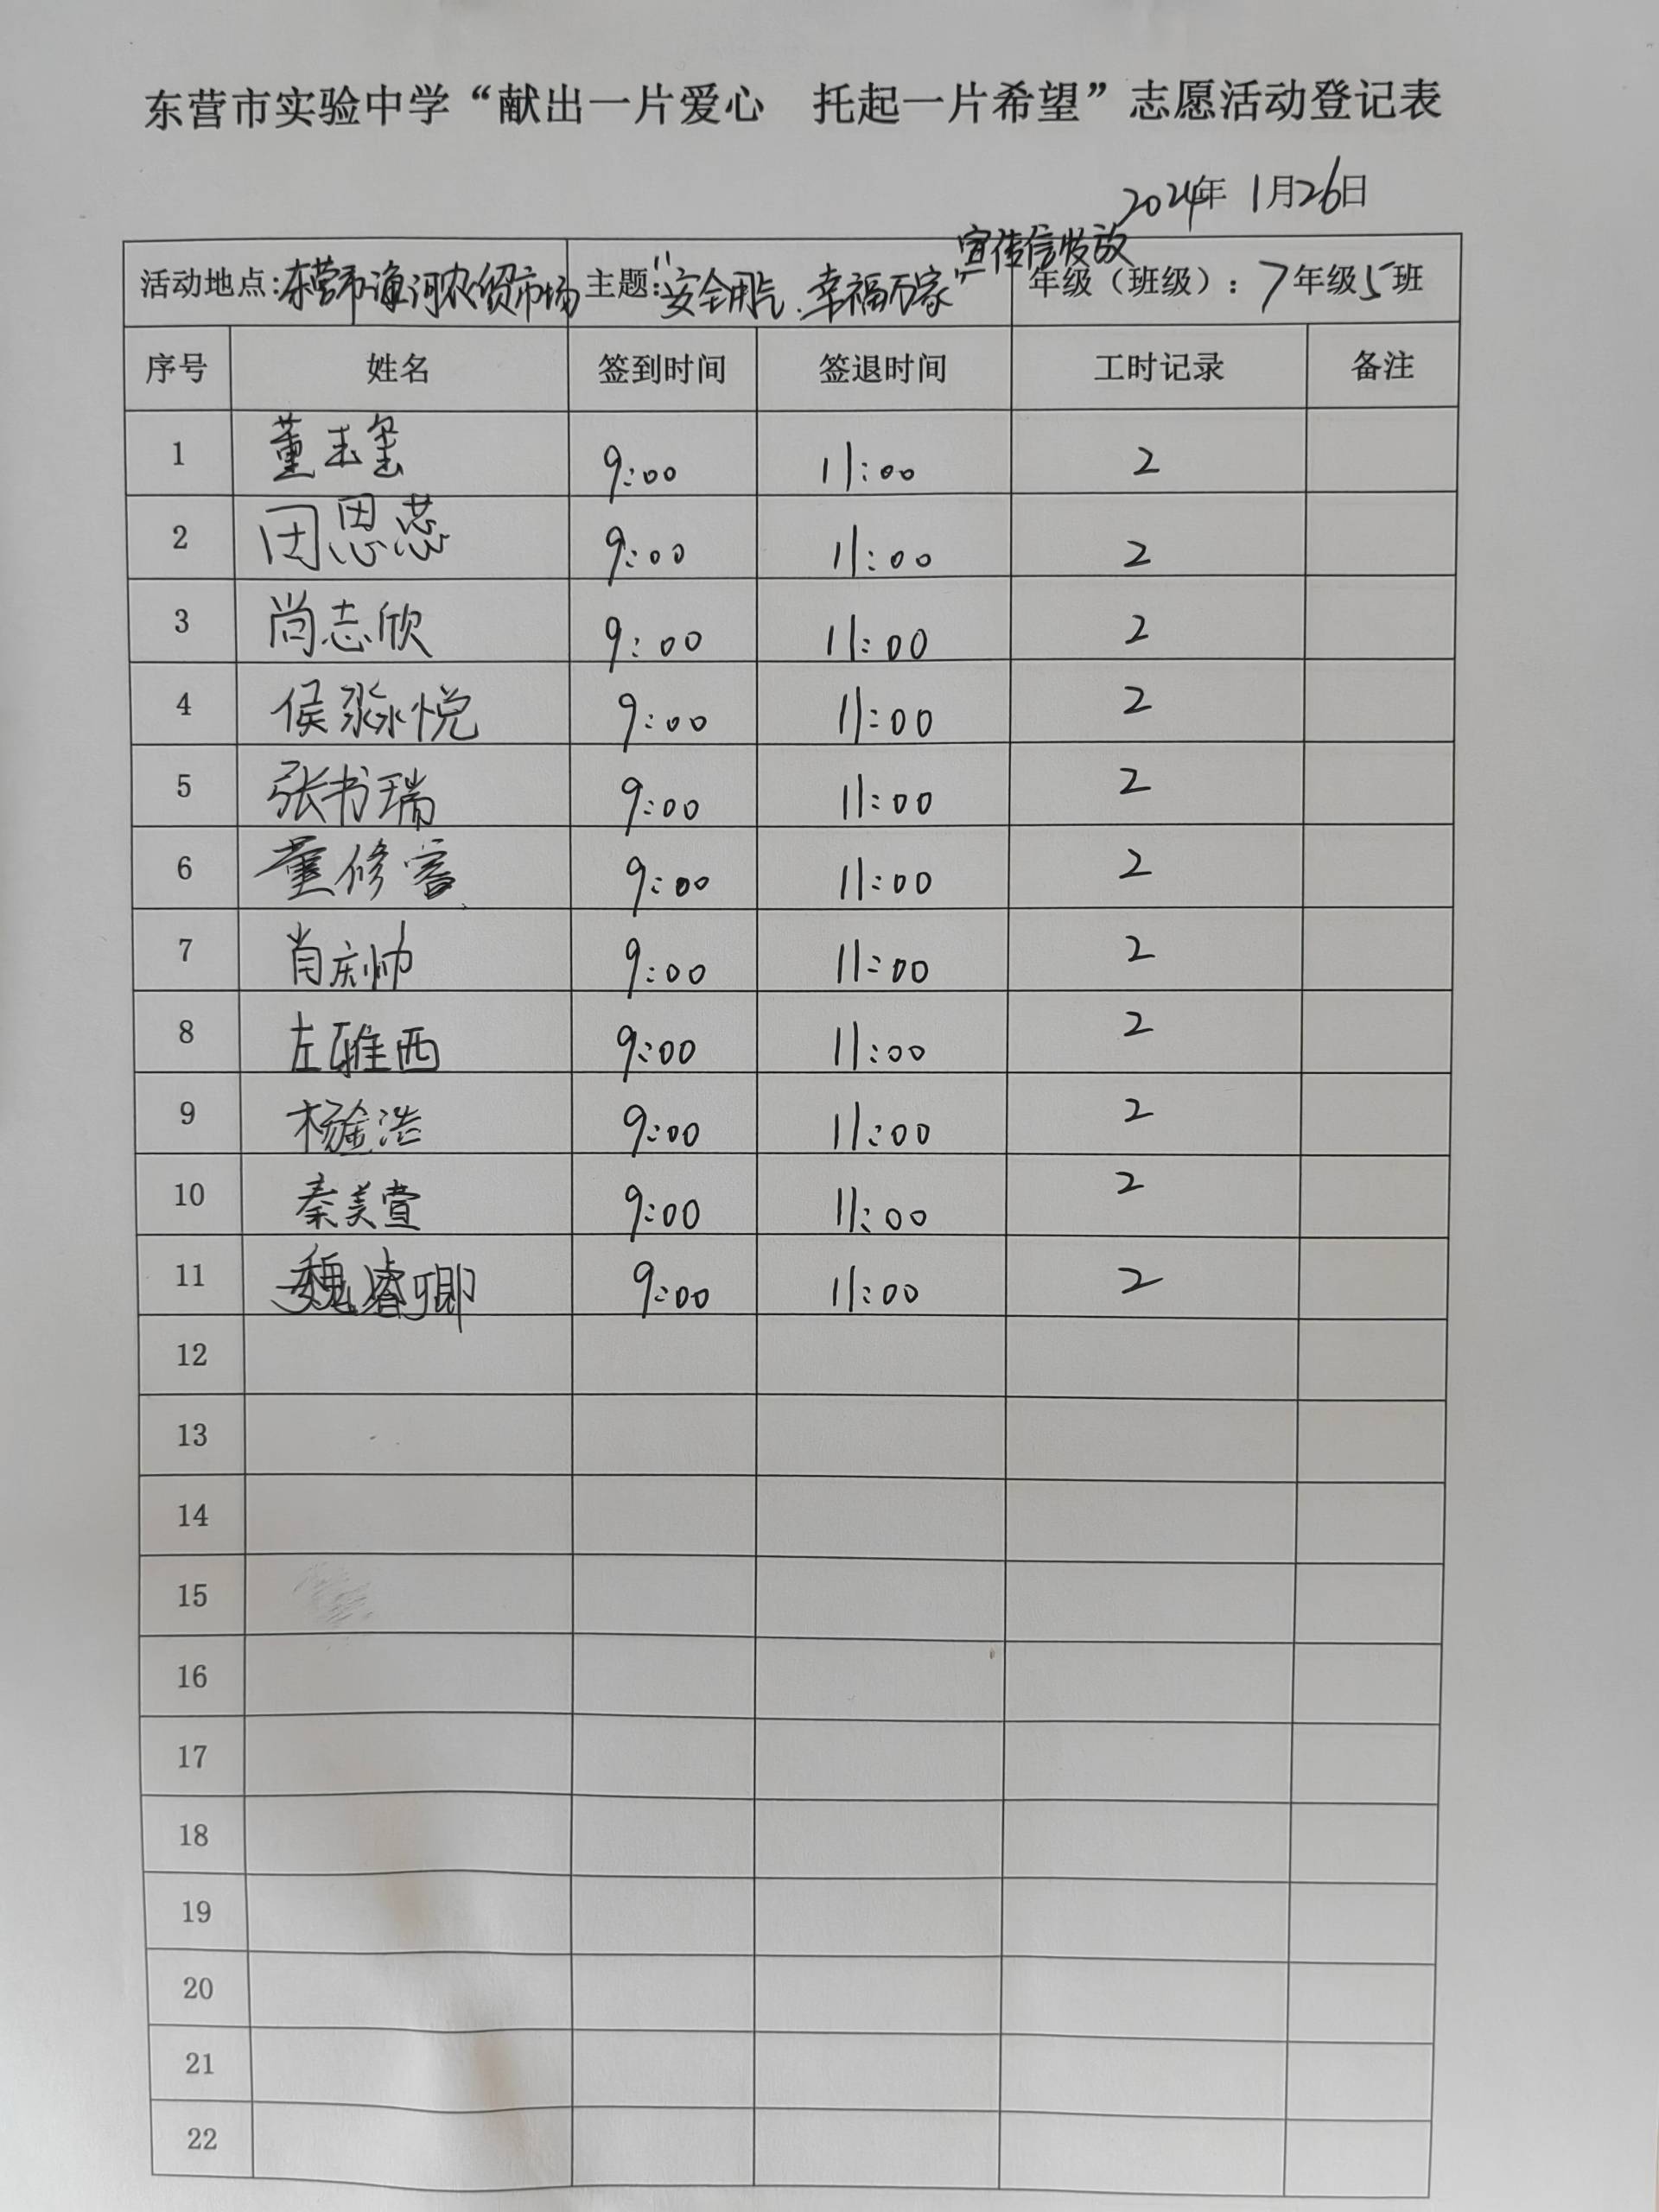 东营市实验中学“献出一片爱心 托起一片希望”志愿活动登记表
2024年 1月26日
活动地点:东营市 河农贸市场 主题:“安全用气、幸福万家”宣传信发放 年级（班级）:7年级5班
序号 姓名 签到时间 签退时间 工时记录 备注
1 董玉玺 9:00 11:00 2
2 田恩蕊 9:00 11:00 2
3 尚志欣 9:00 11:00 2
4 侯淼悦 9:00 11:00 2
5 张书瑞 9:00 11:00 2
6 董修睿 9:00 11:00 2
7 肖庆帅 9:00 11:00 2
8 左雅西 9:00 11:00 2
9 杨金浩 9:00 11:00 2
10 秦美萱 9:00 11:00 2
11 魏睿卿 9:00 11:00 2
12
13
14
15
16
17
18
19
20
21
22